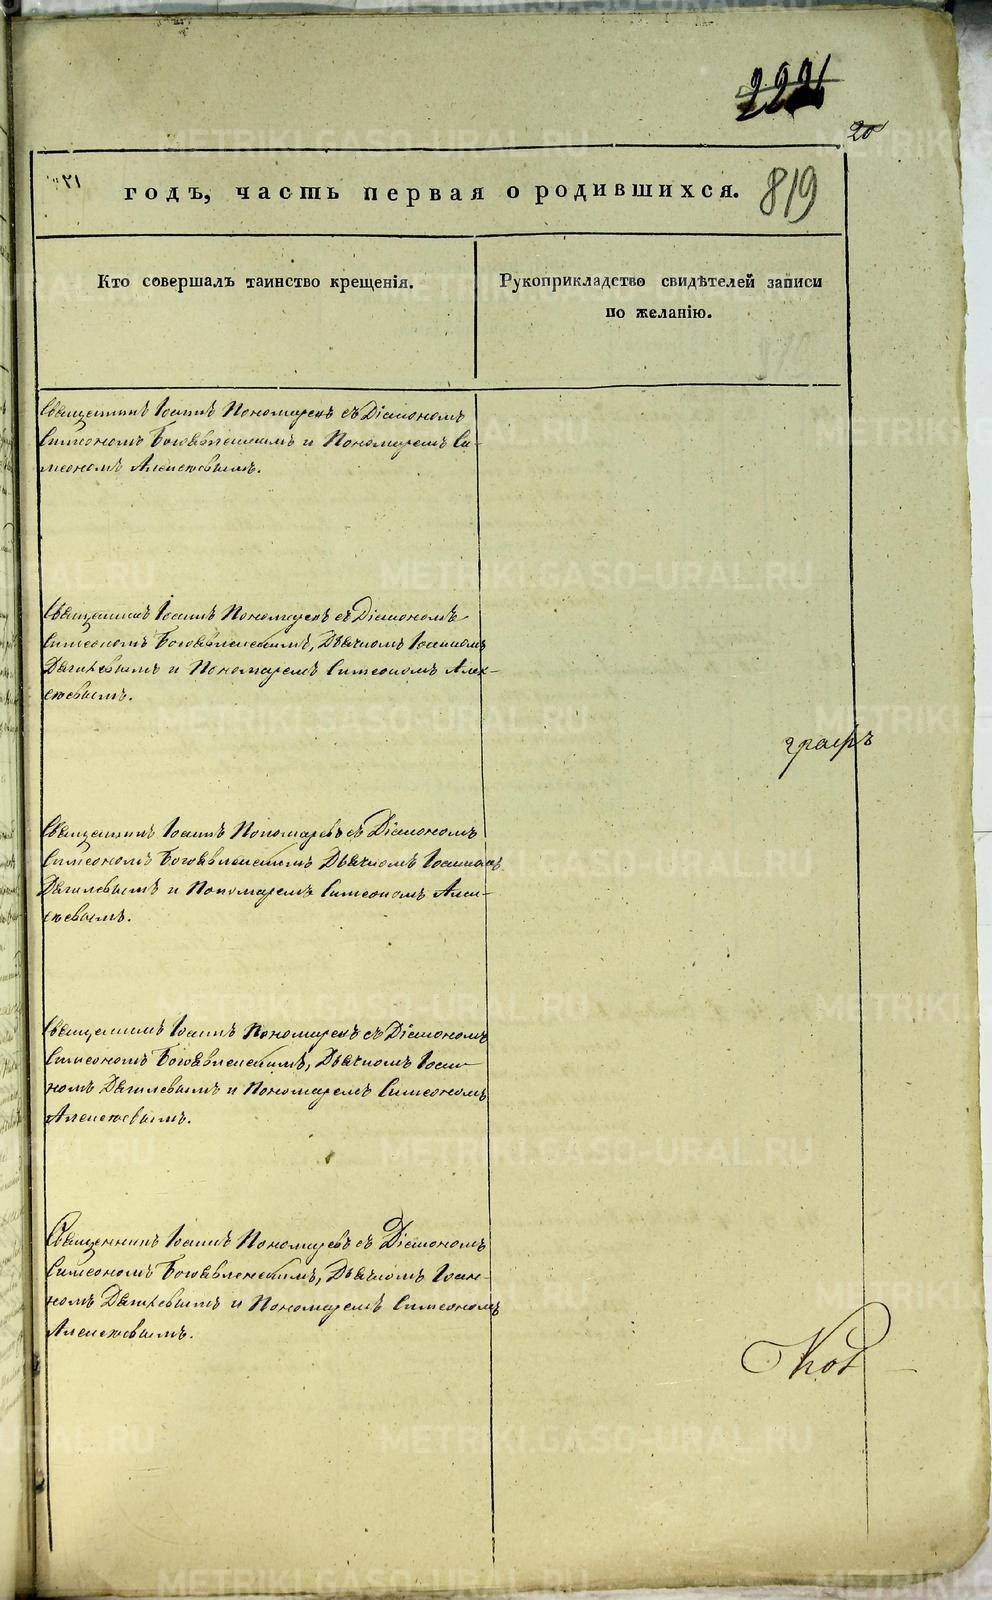 222
20
годъ, часть первая о родившихся.
819
Кто совершалъ таинство крещенія.
Рукоприкладство свидѣтелей записи
по желанію.
Священникъ Іоаннъ Пономаревъ съ Діакономъ
Симеономъ Богоявленскимъ и Пономаремъ Си-
меономъ Алексѣевымъ.
Священникъ Іоаннъ Пономаревъ съ Діакономъ
Симеономъ Богоявленскимъ, Дьячкомъ Іоанномъ
Дягилевымъ и Пономаремъ Симеономъ Алек-
сѣевымъ.
графъ
Священникъ Іоаннъ Пономаревъ съ Діакономъ
Симеономъ Богоявленскимъ Дьячкомъ Іоанномъ
Дягилевымъ и Пономаремъ Симеономъ Алек-
сѣевымъ.
Священникъ Іоаннъ Пономаревъ съ Діакономъ
Симеономъ Богоявленскимъ, Дьячкомъ Іоан-
номъ Дягилевымъ и Пономаремъ Симеономъ
Алексѣевымъ.
Священникъ Іоаннъ Пономаревъ съ Діакономъ
Симеономъ Богоявленскимъ, Дьячкомъ Іоан-
номъ Дягилевымъ и Пономаремъ Симеономъ
Алексѣевымъ.
METRIKI.GASO-URAL.RU